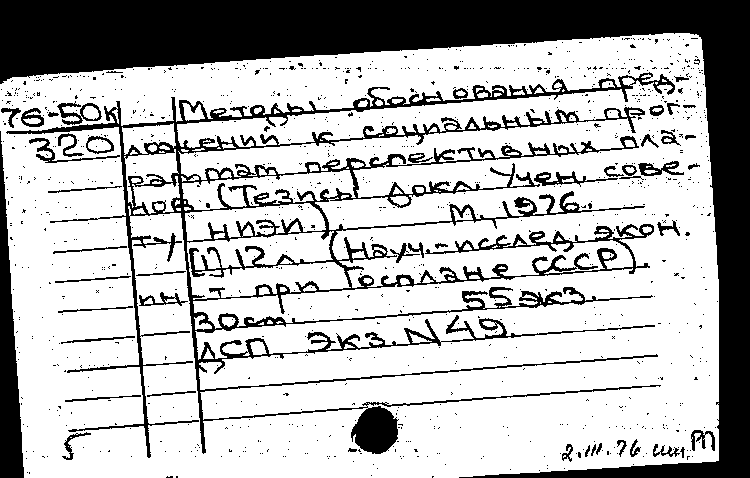 76-50к Методы обоснования пред-
320 ложений к социальным прог-
раммам перспективных пла-
нов. (Тезисы докл. Учен. сове-
ту НИЭИ.). М., 1976.
[1], 12 л. (Науч.-исслед. экон.
ин-т при Госплане СССР).
30 см. 55 экз.
ДСП. Экз. N 49.
2.III.76